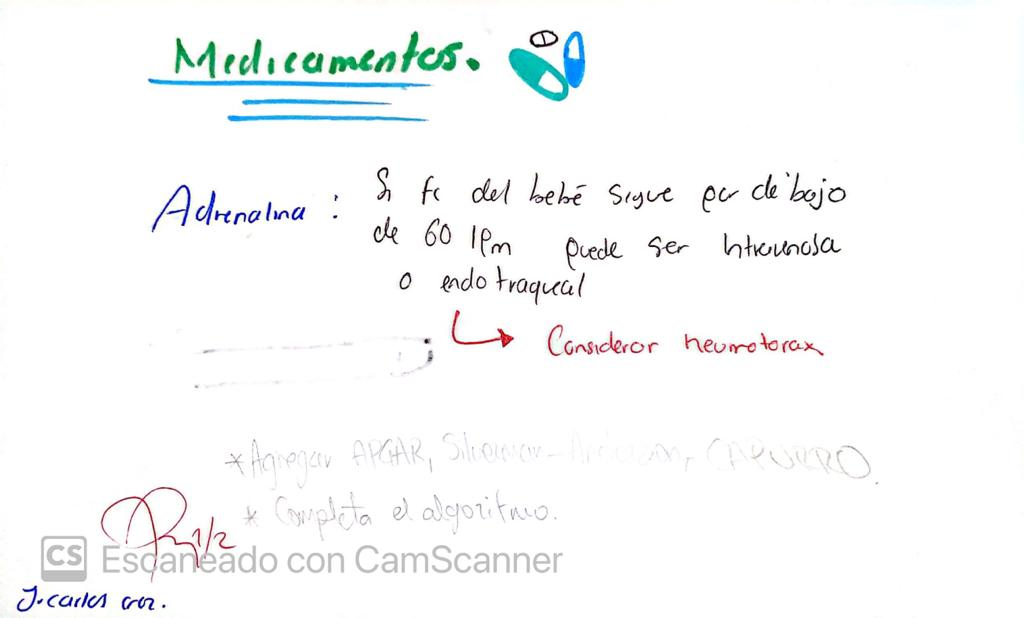 Medicamentos.
Adrenalina : Si fc del bebé sigue por de bajo
de 60 lpm puede ser Intravenosa
o endotraqueal
Considerar neumotorax
*Agregar APGAR, Silverman-Anderson, CAPURRO.
* Completa el algoritmo.
1/2
CS Escaneado con CamScanner
J. carlos